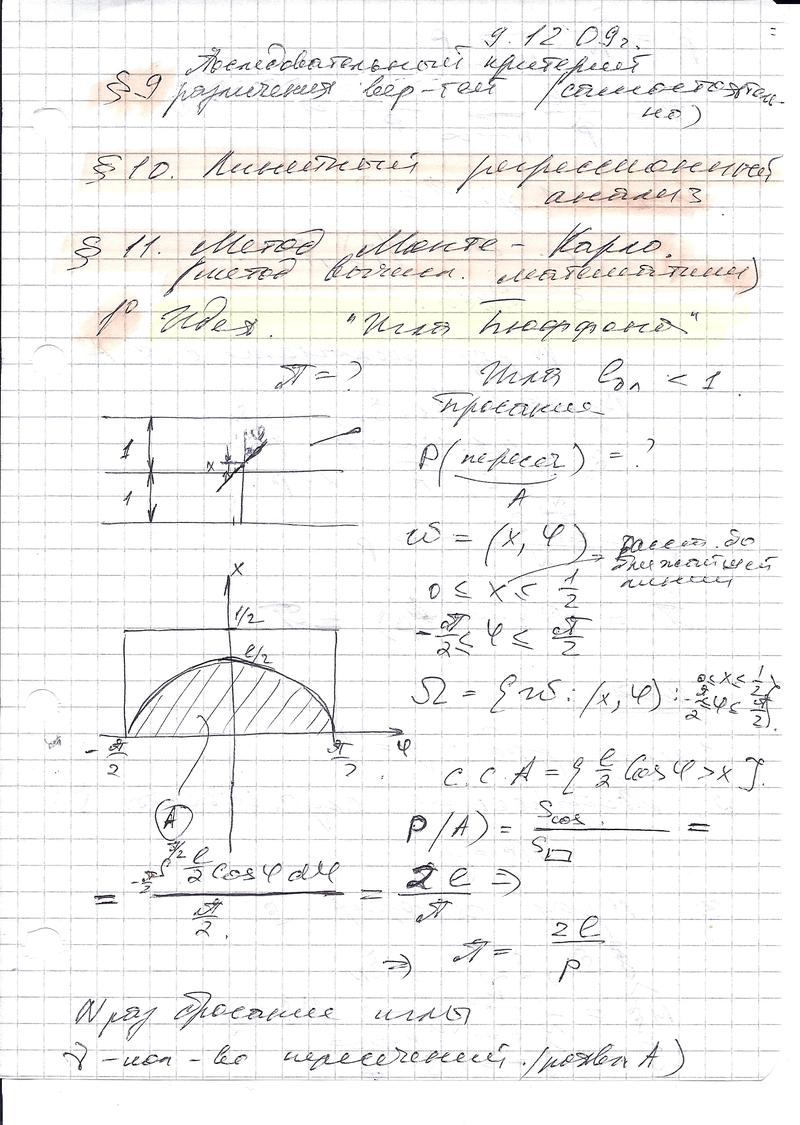 9.12 09г.
Последовательный критерий
§ 9 различения вер-тей (самостоятель-
но)
§ 10. Линейный регрессионный
анализ
§ 11. Метод Монте-Карло.
(метод вычисл. математики)
1° Идея. "Игла Бюффона"
π = ?
Игла l < 1
бросания
1
x
P(пересеч) = ?
A
1
ω = (x, φ)
расст. до
ближайшей
линии
0 ≤ x ≤ 1/2
-π/2 ≤ φ ≤ π/2
x
1/2
l/2
Ω = {ω: (x, φ) : 0≤x≤1/2, -π/2≤φ≤π/2}
-π/2
π/2
φ
С.С. A = {l/2 cosφ > x}.
A
P(A) = S cos. / S□ =
= ∫_{-π/2}^{π/2} l/2 cosφ dφ / π/2. = 2l/π ⇒
⇒ π = 2l/P
N раз бросание иглы
ν - кол-во пересечений. (появл A)